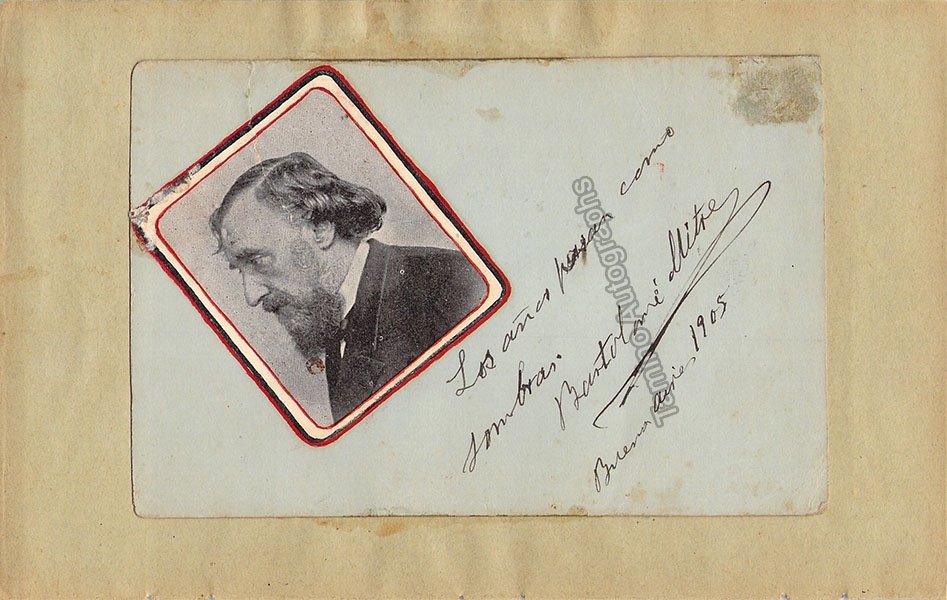 Los años pasan como
sombras.
Bartolomé Mitre
Buenos Aires 1905
Tamino Autographs